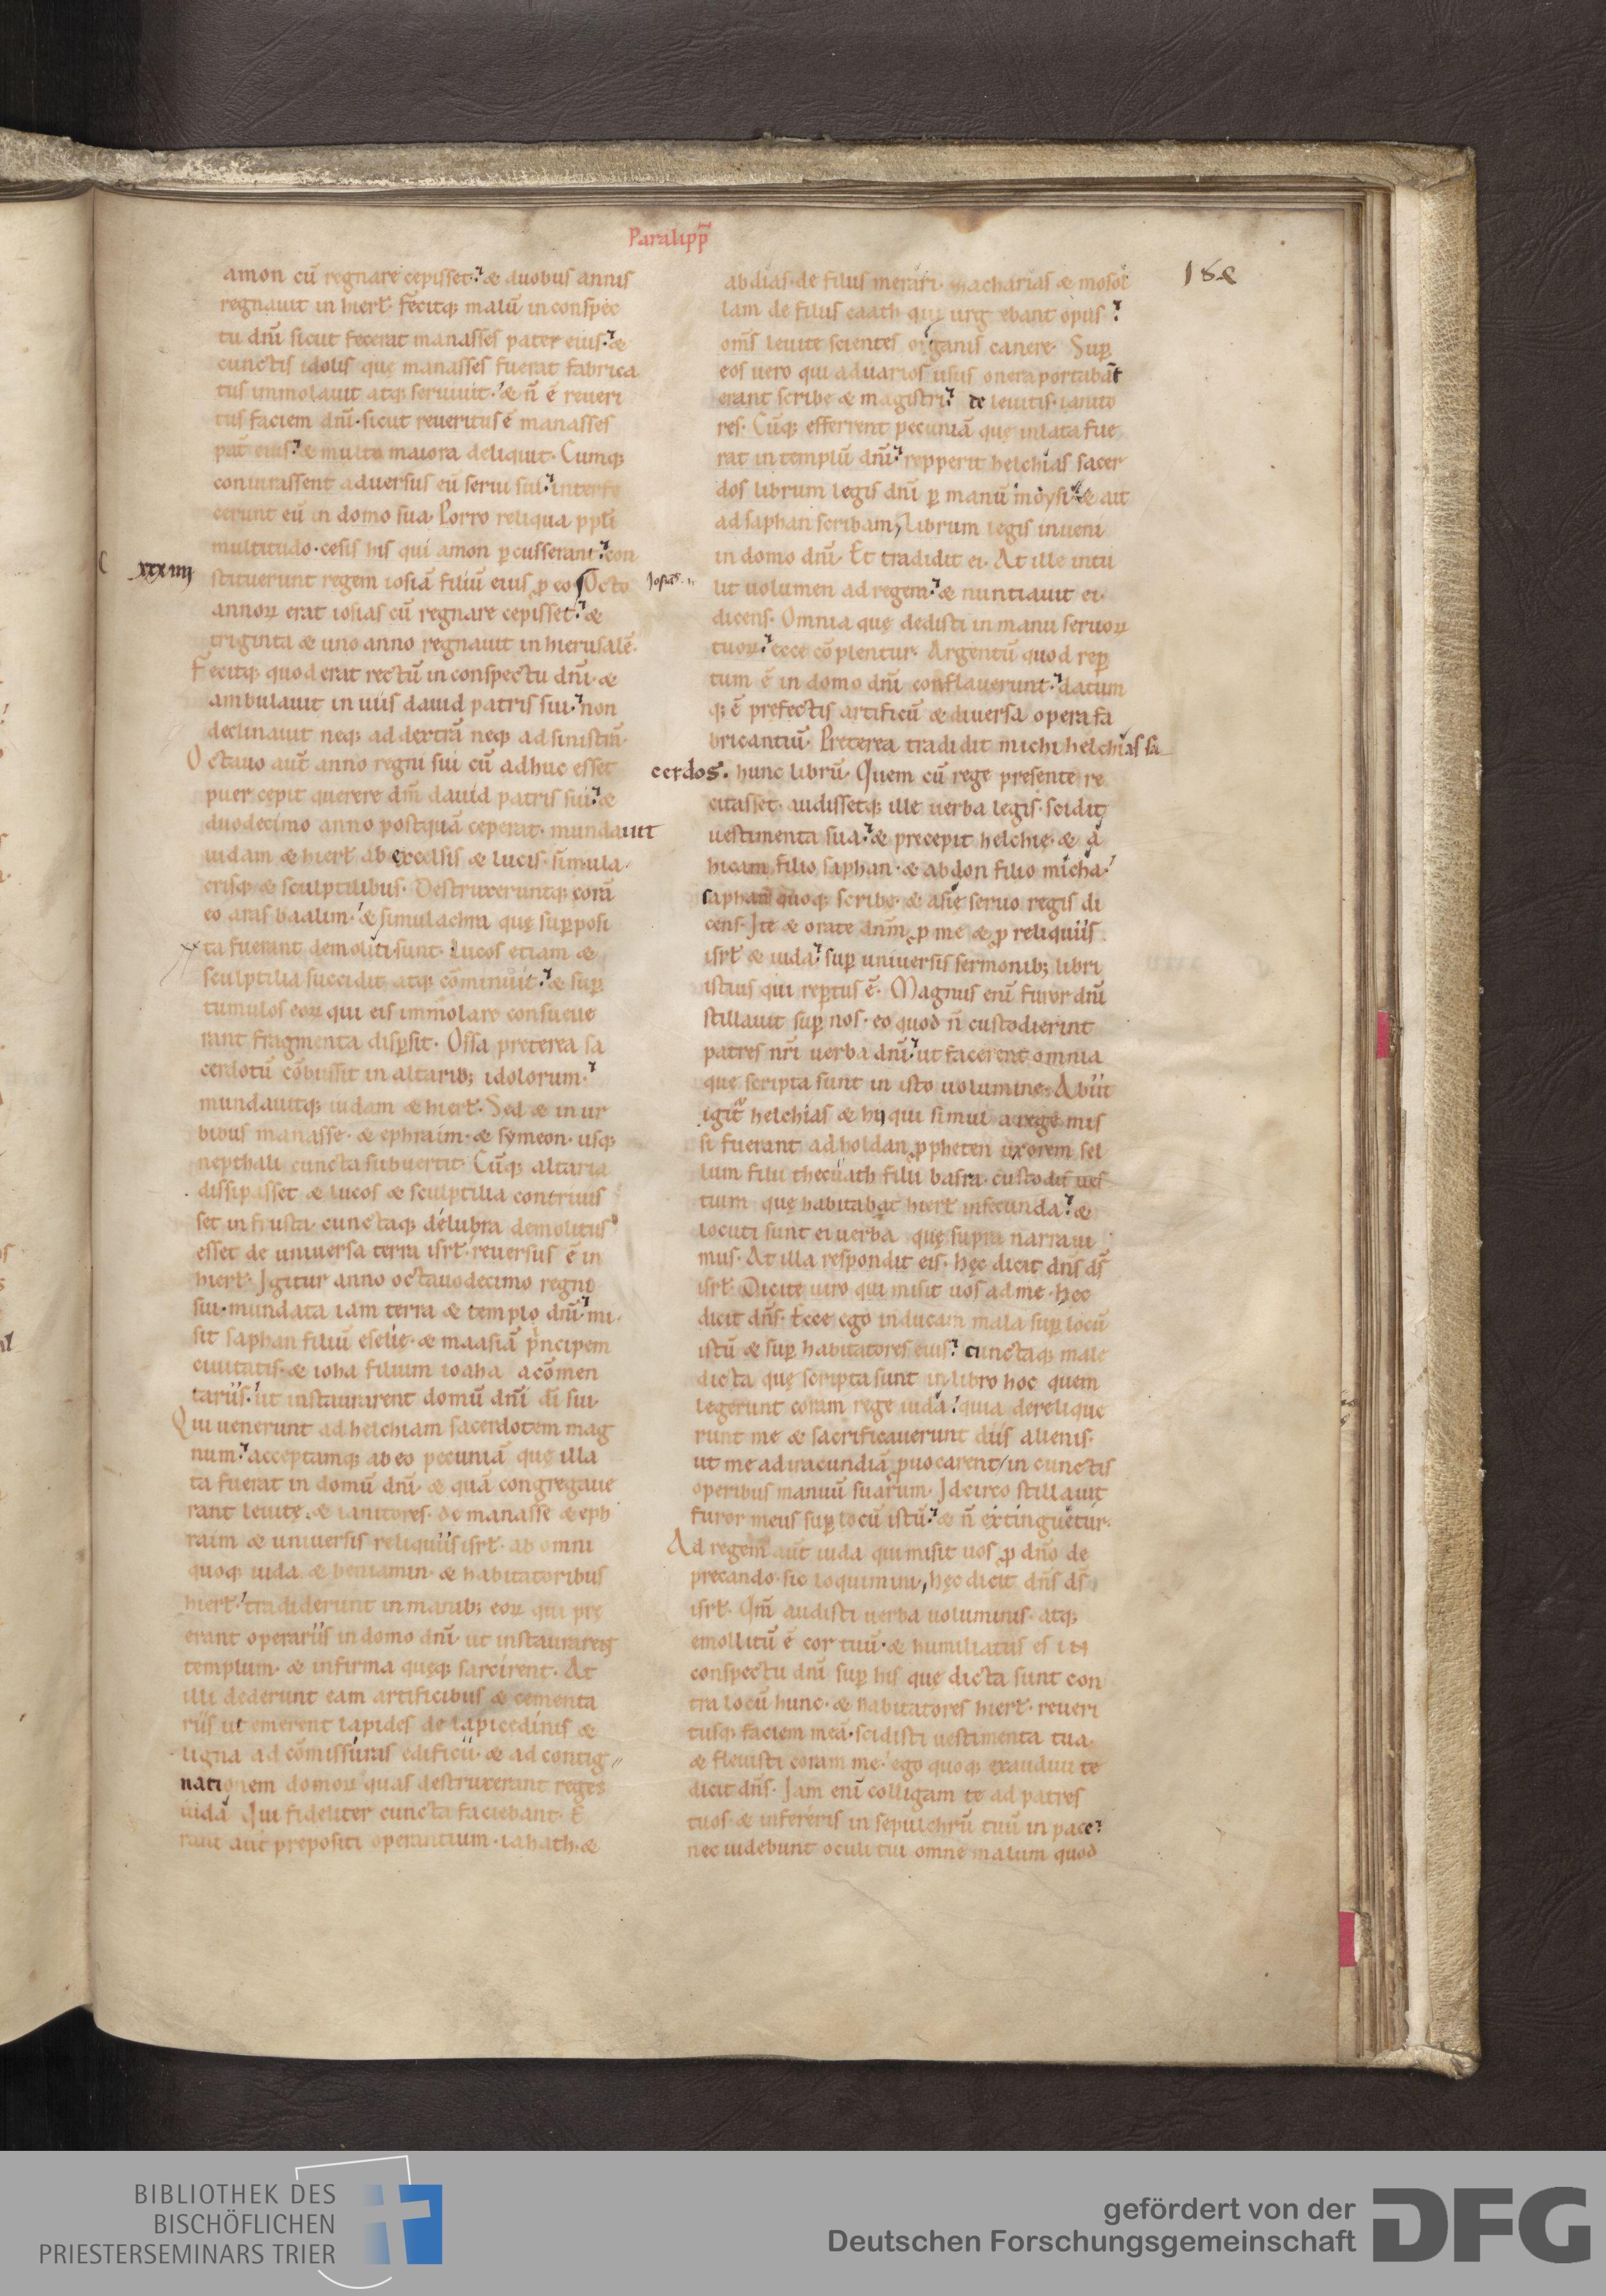 Paralipp̄
18&
amon cū regnare cepisset. & duobus annis
regnauit in hierł. fecitq; malū in conspec
tu dn̄i sicut fecerat manasses pater eius. &
cunctis idolis quę manasses fuerat fabrica
tus immolauit atq; seruiuit. & n̄ ē reueri
tus faciem dn̄i. sicut reueritus ē manasses
pat̄ eius. & multo maiora deliquit. Cumq;
coniurassent aduersus eū serui sui. interfe
cerunt eū in domo sua. Porro reliqua pp̄li
multitudo. cesis his qui amon p̱cusserant. con
C xxxiiij
stituerunt regem iosiā filiū eius ꝓ eo. Octo
Josias
annoꝝ erat iosias cū regnare cepisset. &
triginta & uno anno regnauit in hierusalē.
Fecitq; quod erat rectū in conspectu dn̄i. &
ambulauit in uiis dauid patris sui. non
declinauit neq; ad dextrā neq; ad sinistrā.
Octauo aut̄ anno regni sui cū adhuc esset
puer cepit querere dm̄ dauid patris sui. &
duodecimo anno postquā ceperat. mundauit
iudam & hierł ab excelsis & lucis. simula
crisq; & sculptilibus. Destruxeruntq; corā
eo aras baalim. & simulachra quę sup̱posi
ta fuerant demoliti sunt. Lucos etiam &
sculptilia succidit atq; cōminuit. & sup̱
tumulos eoꝝ qui eis immolare consueue
rant fragmenta disp̱sit. Ossa preterea sa
cerdotū cōbussit in altarib; idolorum.
mundauitq; iudam & hierł. Sed & in ur
bibus manasse. & ephraim. & symeon. usq;
nepthali cuncta subuertit. Cūq; altaria
dissipasset & lucos & sculptilia contriuis
set in frusta. cunctaq; delubra demolitus
esset de uniuersa terra isrł. reuersus ē in
hierł. Igitur anno octauodecimo regni
sui. mundata iam terra & templo dn̄i. mi
sit saphan filiū eselię. & maasiā p̱ncipem
ciuitatis. & ioha filium ioaha a cōmen
tariis. ut instaurarent domū dn̄i dī sui.
Qui uenerunt ad helchiam sacerdotem mag
num. acceptamq; ab eo pecuniā quę illa
ta fuerat in domū dn̄i. & quā congregaue
rant leuitę. & ianitores. de manasse & eph
raim & uniuersis reliquiis isrł. ab omni
quoq; iuda & beniamin. & habitatoribus
hierł. tradiderunt in manib; eoꝝ qui prę
erant operariis in domo dn̄i. ut instaurarent
templum. & infirma quęq; sarcirent. At
illi dederunt eam artificibus & cementa
riis ut emerent lapides de lapicedinis &
ligna ad cōmissuras edificii. & ad contig
nationem domoꝝ quas destruxerant reges
iuda. Qui fideliter cuncta faciebant. E
rant aut̄ prepositi operantium. iahath. &
abdias. de filiis merari. zacharias & mosol
lam de filiis caath qui urgebant opus
om̄s leuite scientes organis canere. Sup̱
eos uero qui ad uarios usus onera portabāt
erant scribe & magistri. de leuitis. ianito
res. Cūq; efferrent pecuniā quę inlata fue
rat in templū dn̄i. repperit helchias sacer
dos librum legis dn̄i p̱ manū moysi. & ait
ad saphan scribam, Librum legis inueni
in domo dn̄i. Et tradidit ei. At ille intu
lit uolumen ad regem. & nuntiauit ei.
dicens. Omnia quę dedisti in manu seruoꝝ
tuoꝝ. ecce cōplentur. Argentū quod rep̱
tum ē in domo dn̄i conflauerunt. datum
q; ē prefectis artificū & diuersa opera fa
bricantiū. Preterea tradidit michi helchias sa
cerdos. hunc librū. Quem cū rege presente re
citasset. audissetq; ille uerba legis. scidit
uestimenta sua. & precepit helchię. & a
hicam filio saphan. & abdon filio micha.
saphan quoq; scribę. & asię seruo regis di
cens. Ite & orate dn̄m ꝓ me & ꝓ reliquiis
isrł & iuda. sup̱ uniuersis sermonib; libri
istius qui rep̱tus ē. Magnus eni furor dn̄i
stillauit sup̱ nos. eo quod n̄ custodierint
patres nr̄i uerba dn̄i. ut facerent omnia
quę scripta sunt in isto uolumine. Abiit
igit̄ helchias & hij qui simul a rege mis
si fuerant ad holdan ꝓpheten uxorem sel
lum filii thecuath filii basra. custodis ues
tium quę habitabat hierł in secunda. &
locuti sunt ei uerba quę supra narraui
mus. At illa respondit eis. hęc dicit dn̄s ds̄
isrł. Dicite uiro qui misit uos ad me. hęc
dicit dn̄s. Ecce ego inducam mala sup̱ locū
istū & sup̱ habitatores eius. cunctaq; male
dicta quę scripta sunt in libro hoc quem
legerunt coram rege iuda. quia derelique
runt me & sacrificauerunt diis alienis.
ut me ad iracundiā ꝓuocarent in cunctis
operibus manuū suarum. Idcirco stillauit
furor meus sup̱ locū istū. & n̄ extinguetur.
Ad regem aut̄ iuda qui misit uos ꝓ dn̄o de
precando. sic loquimini, hęc dicit dn̄s ds̄
isrł. Qm̄ audisti uerba uoluminis. atq;
emollitū ē cor tuū. & humiliatus es in
conspectu dn̄i sup̱ his quę dicta sunt con
tra locū hunc. & habitatores hierł. reueri
tusq; faciem meā. scidisti uestimenta tua.
& fleuisti coram me. ego quoq; exaudiui te
dicit dn̄s. Iam eni colligam te ad patres
tuos. & infereris in sepulchrū tuū in pace.
nec uidebunt oculi tui omne malum quod
BIBLIOTHEK DES
BISCHÖFLICHEN
PRIESTERSEMINARS TRIER
gefördert von der
Deutschen Forschungsgemeinschaft
DFG